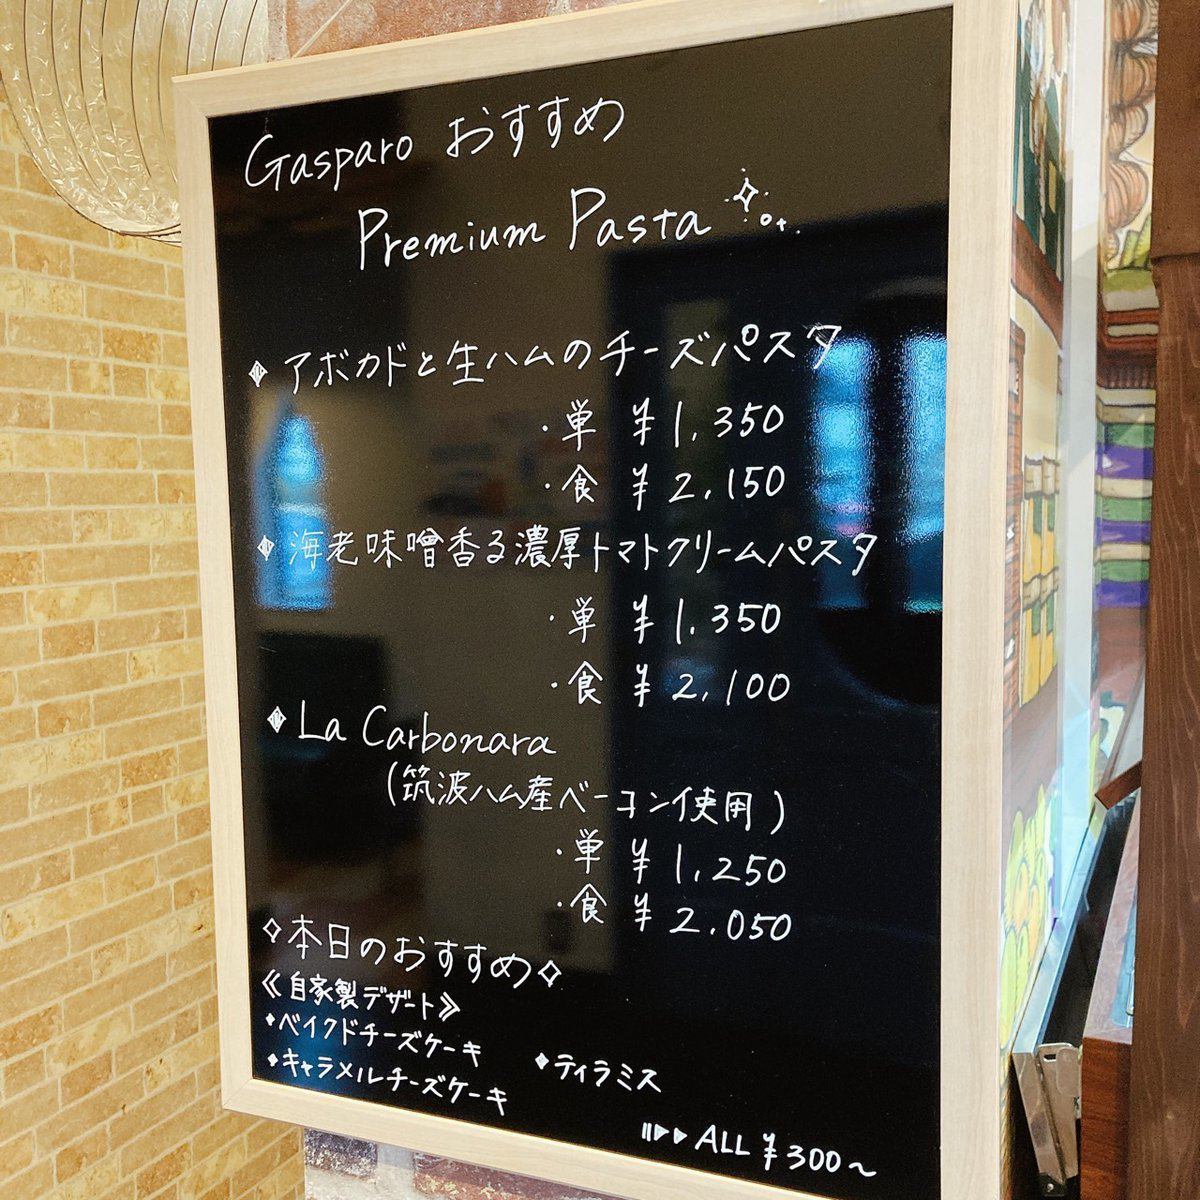 Gasparo おすすめ
Premium Pasta
アボカドと生ハムのチーズパスタ
・単 ¥1,350
・食 ¥2,150
海老味噌香る濃厚トマトクリームパスタ
・単 ¥1,350
・食 ¥2,100
La Carbonara
(筑波ハム産ベーコン使用)
・単 ¥1,250
・食 ¥2,050
本日のおすすめ
《自家製デザート》
ベイクドチーズケーキ
ティラミス
キャラメルチーズケーキ
ALL ¥300～